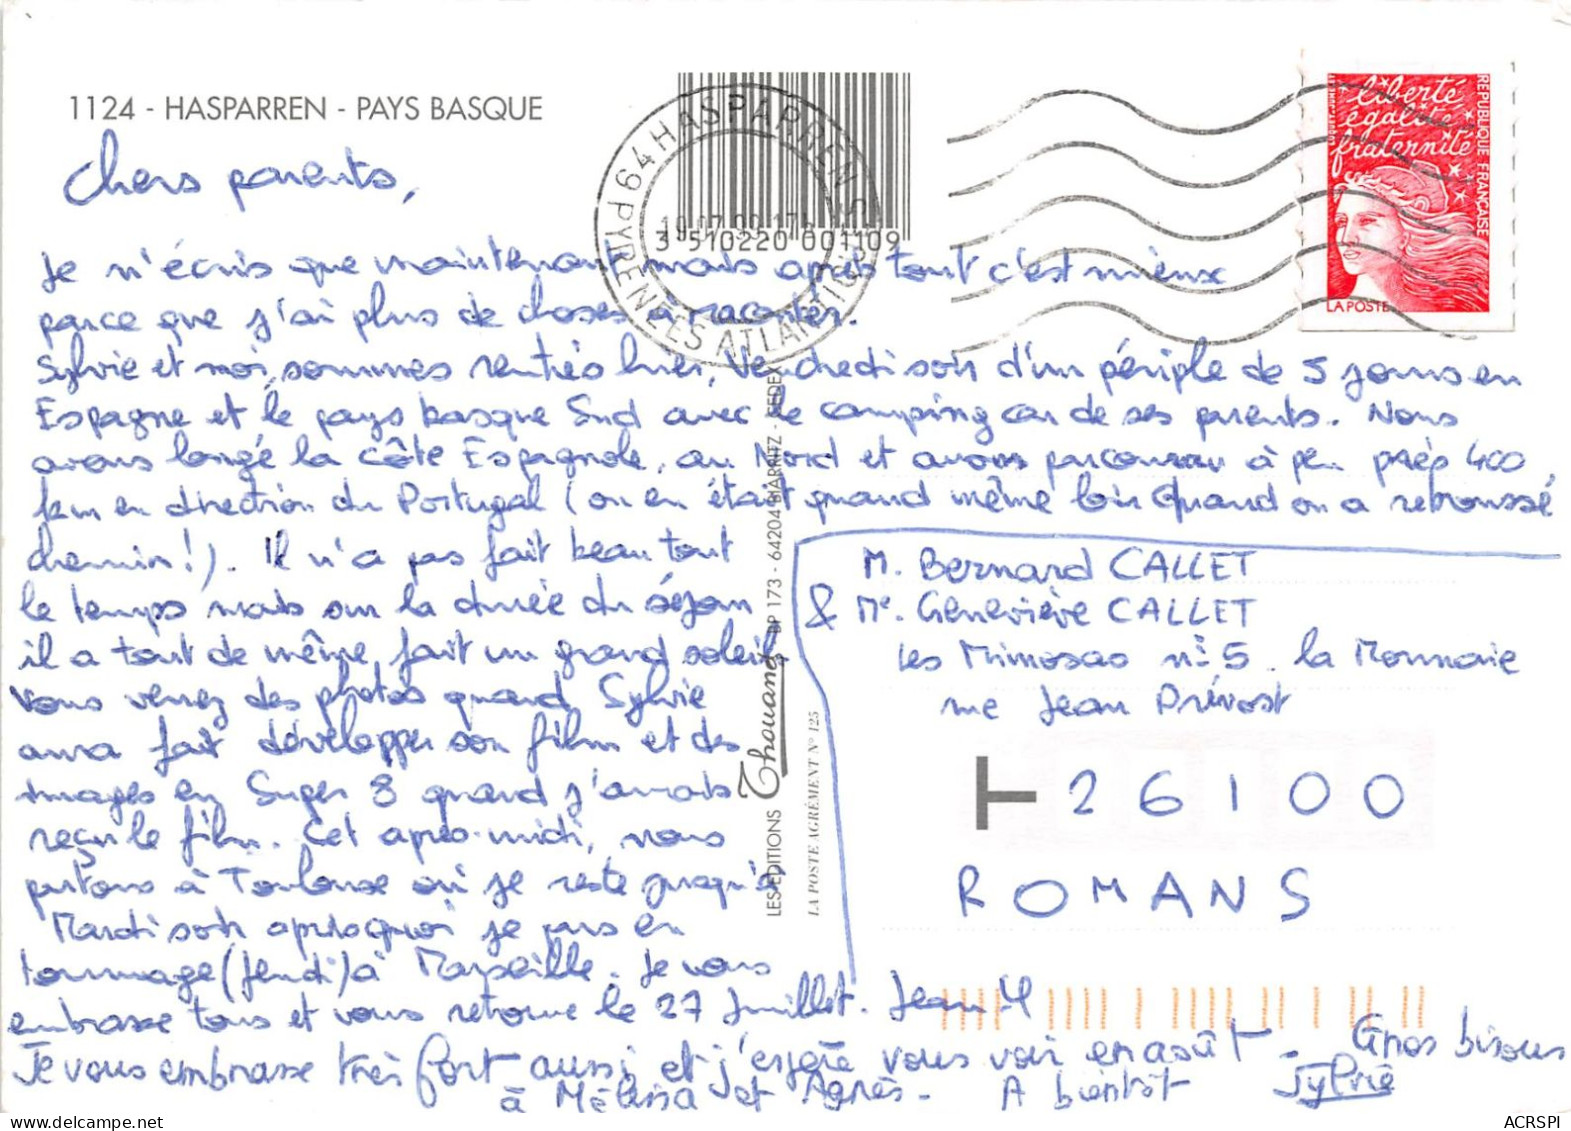 1124 - HASPARREN - PAYS BASQUE
64 HASPARREN
PYRENEES ATLANTIQUES
19-07-99 17H
3 510220 001109
liberté
égalité
fraternité
REPUBLIQUE FRANÇAISE
LA POSTE
Chers parents,
Je n'écris que maintenant mais après tout c'est mieux
parce que j'ai plus de choses à raconter.
Sylvie et moi, sommes rentrés hier, Vendredi soir d'un périple de 5 jours en
Espagne et le pays basque Sud avec le camping car de ses parents. Nous
avons longé la côte Espagnole, au Nord et avons parcouru à peu près 400
km en direction du Portugal (on en était quand même loin quand on a retroussé
chemin!). Il n'a pas fait beau tout
le temps mais sur la durée du séjour
il a tout de même fait un grand soleil,
vous verrez des photos quand Sylvie
aura fait développer son film et des
images en Super 8 quand j'aurais
reçu le film. Cet après-midi, nous
partons à Toulouse où je reste jusqu'à
Mardi soir après quoi je pars en
tournage (Jeudi) à Marseille. Je vous
embrasse tous et vous retrouve le 27 Juillet. Jean M
Je vous embrasse très fort aussi et j'espère vous voir en août - Gros bisous
à Mélissa et Agnès - A bientôt Sylvie
LES EDITIONS Thouand BP 173 - 64204 BIARRITZ - CEDEX
LA POSTE AGRÉMENT N° 125
M. Bernard CALLET
& Me. Geneviève CALLET
Les Mimosas n° 5. la Monnaie
rue Jean Prévost
26100
ROMANS
delcampe.net
ACRSPI